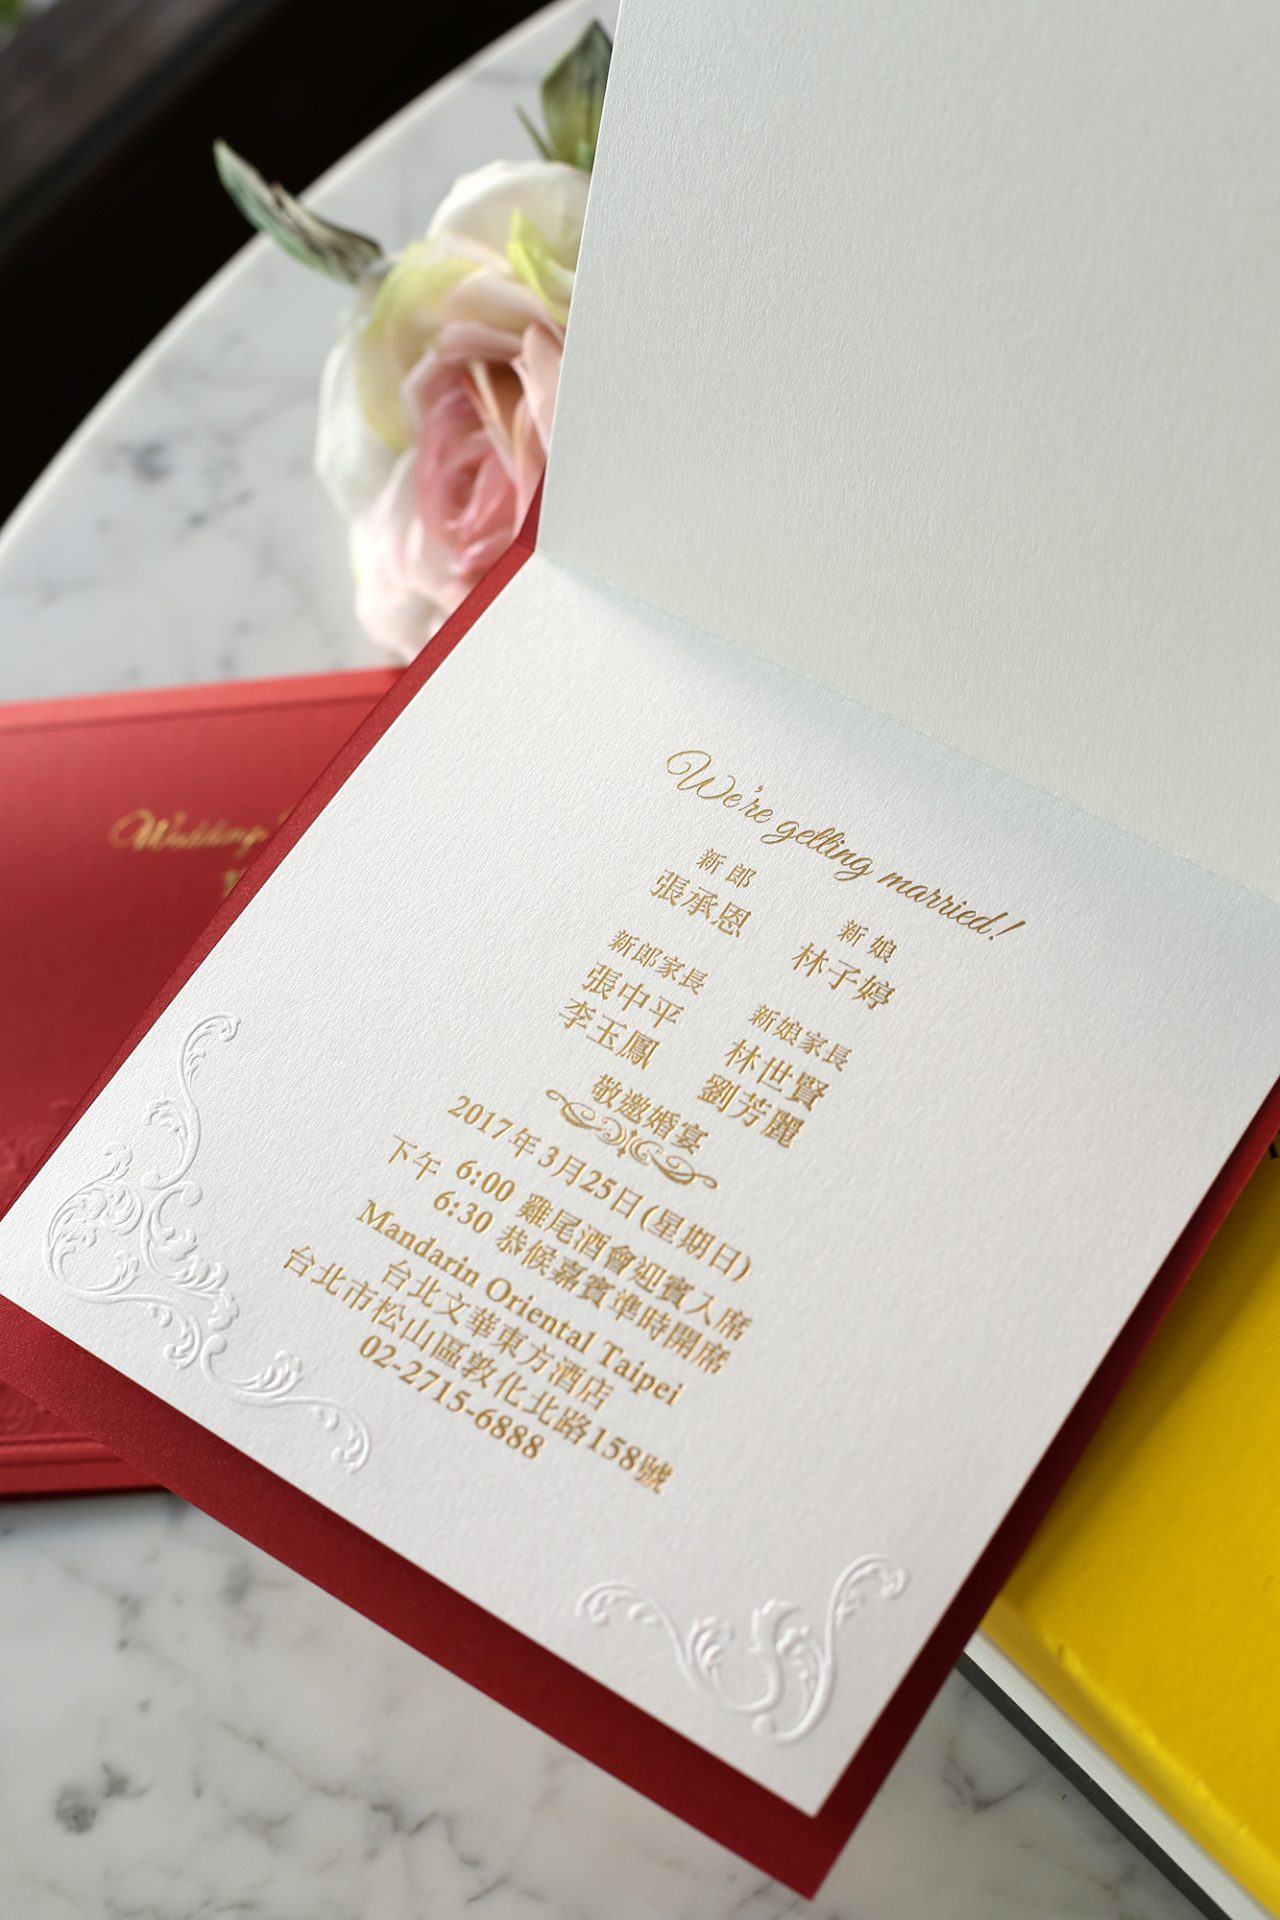 We're getting married!
新郎
張承恩
新娘
林子婷
新郎家長
張中平
李玉鳳
新娘家長
林世賢
劉芳麗
敬邀婚宴
2017年3月25日(星期日)
下午 6:00 雞尾酒會迎賓入席
6:30 恭候嘉賓準時開席
Mandarin Oriental Taipei
台北文華東方酒店
台北市松山區敦化北路158號
02-2715-6888
Wedding